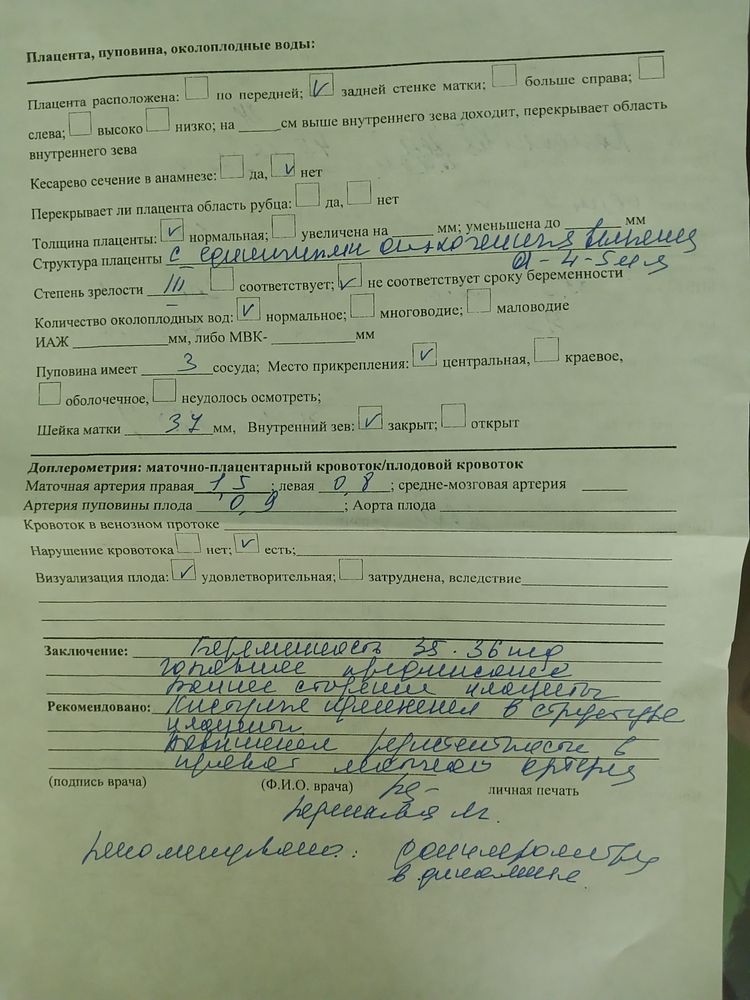 Плацента, пуповина, околоплодные воды:
Плацента расположена: по передней; V задней стенке матки; больше справа;
слева; высоко низко; на _____см выше внутреннего зева доходит, перекрывает область
внутреннего зева
Кесарево сечение в анамнезе: да, V нет
Перекрывает ли плацента область рубца: да, нет
Толщина плаценты: V нормальная; увеличена на ______ мм; уменьшена до ______ мм
Структура плаценты с единичными включениями
d - 4-5мм
Степень зрелости III соответствует; V не соответствует сроку беременности
Количество околоплодных вод: V нормальное; многоводие; маловодие
ИАЖ _____________мм, либо МВК- ___________мм
Пуповина имеет 3 сосуда; Место прикрепления: V центральная, краевое,
оболочечное, неудолось осмотреть;
Шейка матки 37 мм, Внутренний зев: V закрыт; открыт
Доплерометрия: маточно-плацентарный кровоток/плодовой кровоток
Маточная артерия правая 1,5; левая 0,8; средне-мозговая артерия ______
Артерия пуповины плода 0,9; Аорта плода
Кровоток в венозном протоке
Нарушение кровотока нет; V есть;
Визуализация плода: V удовлетворительная; затруднена, вследствие
Заключение: Беременность 35-36 нед
головное предлежание
Раннее старение плаценты
Рекомендовано: Кистозные изменения в структуре
плаценты
Повышенная резистентность в
правой маточной артерии
(подпись врача) (Ф.И.О. врача) личная печать
рекомендовано: допплерометрия
в динамике.